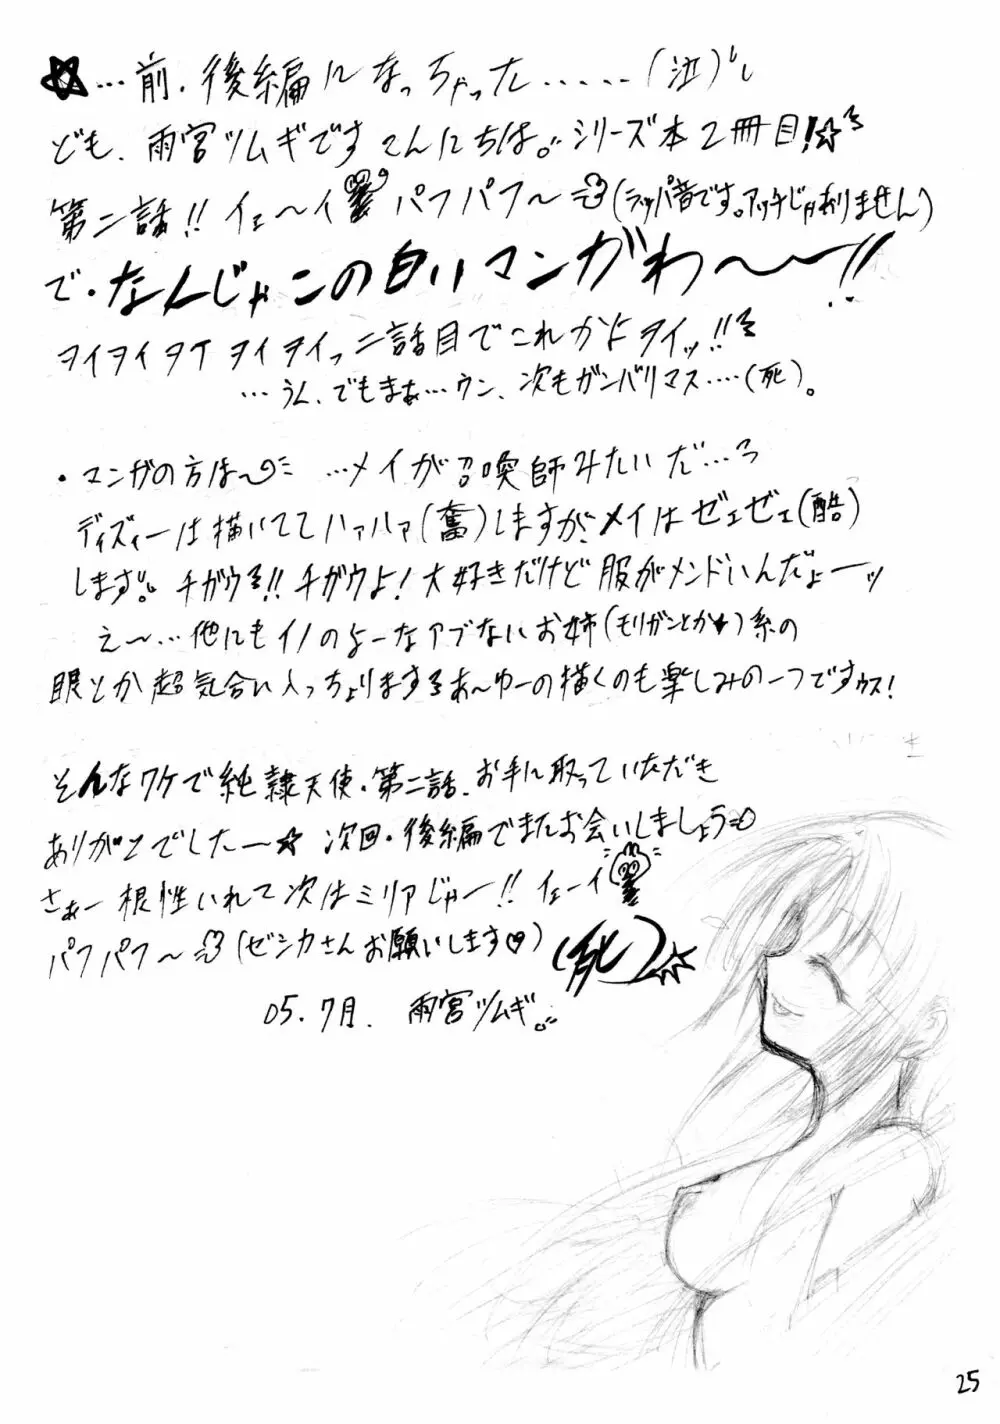 ☆…前・後編になっちゃった……(泣)
ども、雨宮ツムギです こんにちは。シリーズ本2冊目!☆
第二話!! イェ〜イ パフパフ〜(ラッパ音です。アッチじゃありません)
で・なんじゃこの白いマンガわ〜〜!!
ヲイヲイヲイヲイヲイっ二話目でこれかよヲイッ!!
…うん、でもまぁ…ウン、次もガンバリマス…(死)。
・マンガの方は〜 …メイが召喚師みたいだ…
ディズィーは描いててハァハァ(奮)しますが、メイはゼェゼェ(酷)
します。チガウ!! チガウよ! 大好きだけど服がメンドいんだよーッ
え〜…他にもイノのよーなアブないお姉(モリガンとか)系の
眼とか超気合い入っちょります あ〜ゆーの描くのも楽しみの一つですウス!
そんなワケで純隷天使・第二話、お手に取っていただき
ありがとでしたー☆ 次回・後編でまたお会いしましょう
さぁー根性いれて次はミリアじゃー!! イェーイ
パフパフ〜(ゼシカさんお願いします♡) (死)☆
05.7月. 雨宮ツムギ。
25